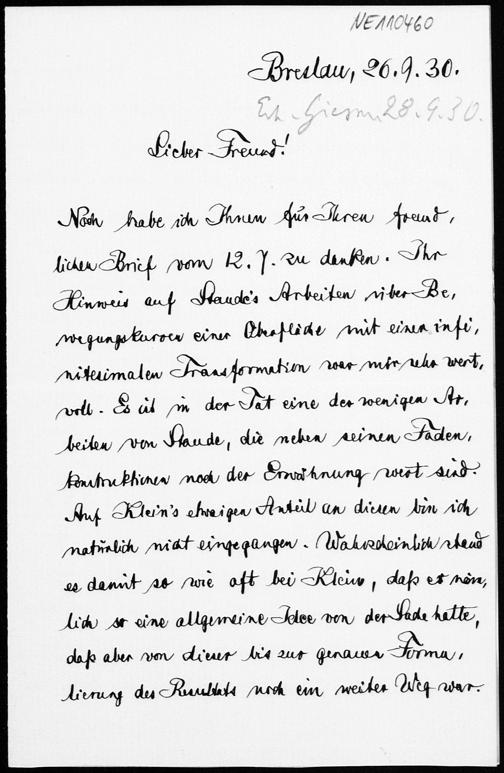 NE110460
Breslau, 26.9.30.
Erh. Giessen 28.9.30.
Lieber Freund!
Noch habe ich Ihnen für Ihren freund,
lichen Brief vom 12. 7. zu danken. Ihr
Hinweis auf Staude's Arbeiten über Be,
wegungskurven einer Oberfläche mit einer infi,
nitesimalen Transformation war mir sehr wert,
voll. Es ist in der Tat eine der wenigen Ar,
beiten von Staude, die neben seinen Faden,
konstruktionen noch der Erwähnung wert sind.
Auf Klein's etwaigen Anteil an diesen bin ich
natürlich nicht eingegangen. Wahrscheinlich stand
es damit so wie oft bei Klein, daß er näm,
lich so eine allgemeine Idee von der Sache hatte,
daß aber von dieser bis zur genauen Formu,
lierung des Resultats noch ein weiter Weg war.